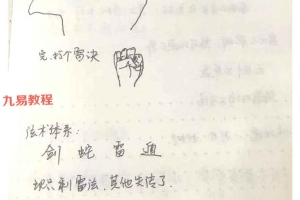 完.打个雷决
九易教程
法术体系:
剑 蛇 雷 遁
现只剩雷法,其他失传了.